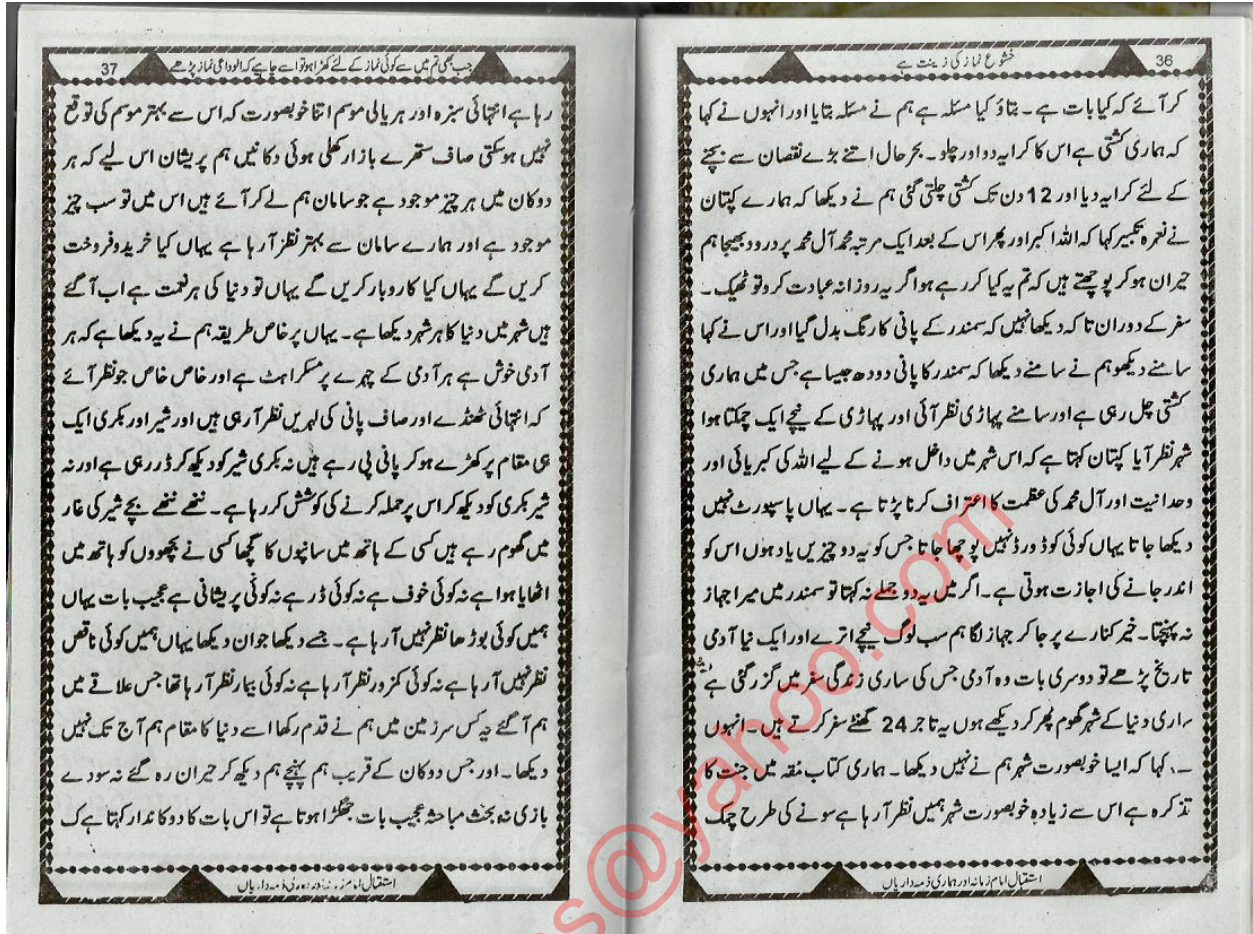 36
خشوع نماز کی زینت ہے
کر آئے کہ کیا بات ہے۔ بتاؤ کیا مسئلہ ہے ہم نے مسئلہ بتایا اور انہوں نے کہا
کہ ہماری کشتی ہے اس کا کرایہ دو اور چلو۔ بحر حال اتنے بڑے نقصان سے بچنے
کے لئے کرایہ دیا اور 12 دن تک کشتی چلتی گئی ہم نے دیکھا کہ ہمارے کپتان
نے نعرہ تکبیر کہا کہ اللہ اکبر اور پھر اس کے بعد ایک مرتبہ محمد آل محمد پر درود بھیجا ہم
حیران ہو کر پوچھتے ہیں کہ تم یہ کیا کر رہے ہو اگر یہ روزانہ عبادت کرو تو ٹھیک۔
سفر کے دوران تا کہ دیکھا نہیں کہ سمندر کے پانی کا رنگ بدل گیا اور اس نے کہا
سامنے دیکھو ہم نے سامنے دیکھا کہ سمندر کا پانی دودھ جیسا ہے جس میں ہماری
کشتی چل رہی ہے اور سامنے پہاڑی نظر آئی اور پہاڑی کے نیچے ایک چمکتا ہوا
شہر نظر آیا کپتان کہتا ہے کہ اس شہر میں داخل ہونے کے لیے اللہ کی کبریائی اور
وحدانیت اور آل محمد کی عظمت کا اعتراف کرنا پڑتا ہے۔ یہاں پاسپورٹ نہیں
دیکھا جاتا یہاں کوئی کوڈ ورڈ نہیں پوچھا جاتا جس کو یہ دو چیزیں یاد ہوں اس کو
اندر جانے کی اجازت ہوتی ہے۔ اگر میں یہ دو جملے نہ کہتا تو سمندر میں میرا جہاز
نہ پہنچتا۔ خیر کنارے پر جا کر جہاز لگا ہم سب لوگ نیچے اترے اور ایک نیا آدمی
تاریخ پڑھے تو دوسری بات وہ آدمی جس کی ساری زندگی سفر میں گزر گئی ہے
ساری دنیا کے شہر گھوم پھر کر دیکھے ہوں یہ تاجر 24 گھنٹے سفر کرتے ہیں۔ انہوں
کہا کہ ایسا خوبصورت شہر ہم نے نہیں دیکھا۔ ہماری کتاب فقہ میں جنت کا
تذکرہ ہے اس سے زیادہ خوبصورت شہر ہمیں نظر آ رہا ہے سونے کی طرح چمک
استقبال امام زمانہ اور ہماری ذمہ داریاں
37
جب بھی تم میں سے کوئی نماز کے لئے کھڑا ہو تو اسے چاہیے کہ الوداعی نماز پڑھے
رہا ہے انتہائی سبزہ اور ہریالی موسم اتنا خوبصورت کہ اس سے بہتر موسم کی توقع
نہیں ہو سکتی صاف ستھرے بازار کھلی ہوئی دکانیں ہم پریشان اس لیے کہ ہر
دوکان میں ہر چیز موجود ہے جو سامان ہم لے کر آئے ہیں اس میں تو سب چیز
موجود ہے اور ہمارے سامان سے بہتر نظر آ رہا ہے یہاں کیا خرید و فروخت
کریں گے یہاں کیا کاروبار کریں گے یہاں تو دنیا کی ہر نعمت ہے اب آ گئے
ہیں شہر میں دنیا کا ہر شہر دیکھا ہے۔ یہاں پر خاص طریقہ ہم نے یہ دیکھا ہے کہ ہر
آدمی خوش ہے ہر آدمی کے چہرے پر مسکراہٹ ہے اور خاص خاص جو نظر آئے
کہ انتہائی ٹھنڈے اور صاف پانی کی لہریں نظر آ رہی ہیں اور شیر اور بکری ایک
ہی مقام پر کھڑے ہو کر پانی پی رہے ہیں نہ بکری شیر کو دیکھ کر ڈر رہی ہے اور نہ
شیر بکری کو دیکھ کر اس پر حملہ کرنے کی کوشش کر رہا ہے۔ ننھے ننھے بچے شیر کی غار
میں گھوم رہے ہیں کسی کے ہاتھ میں سانپوں کا گچھا کسی نے بچھووں کو ہاتھ میں
اٹھایا ہوا ہے نہ کوئی خوف ہے نہ کوئی ڈر ہے نہ کوئی پریشانی ہے عجیب بات یہاں
ہمیں کوئی بوڑھا نظر نہیں آ رہا ہے۔ جسے دیکھا جوان دیکھا یہاں ہمیں کوئی ناقص
نظر نہیں آ رہا ہے نہ کوئی کمزور نظر آ رہا ہے نہ کوئی بیمار نظر آ رہا تھا جس علاقے میں
ہم آ گئے یہ کس سرزمین میں ہم نے قدم رکھا اسے دنیا کا مقام ہم آج تک نہیں
دیکھا۔ اور جس دوکان کے قریب ہم پہنچے ہم دیکھ کر حیران رہ گئے نہ سودے
بازی نہ بحث مباحثہ عجیب بات جھگڑا ہوتا ہے تو اس بات کا دوکاندار کہتا ہے ک
استقبال امام زمانہ اور ہماری ذمہ داریاں
s@yahoo.com